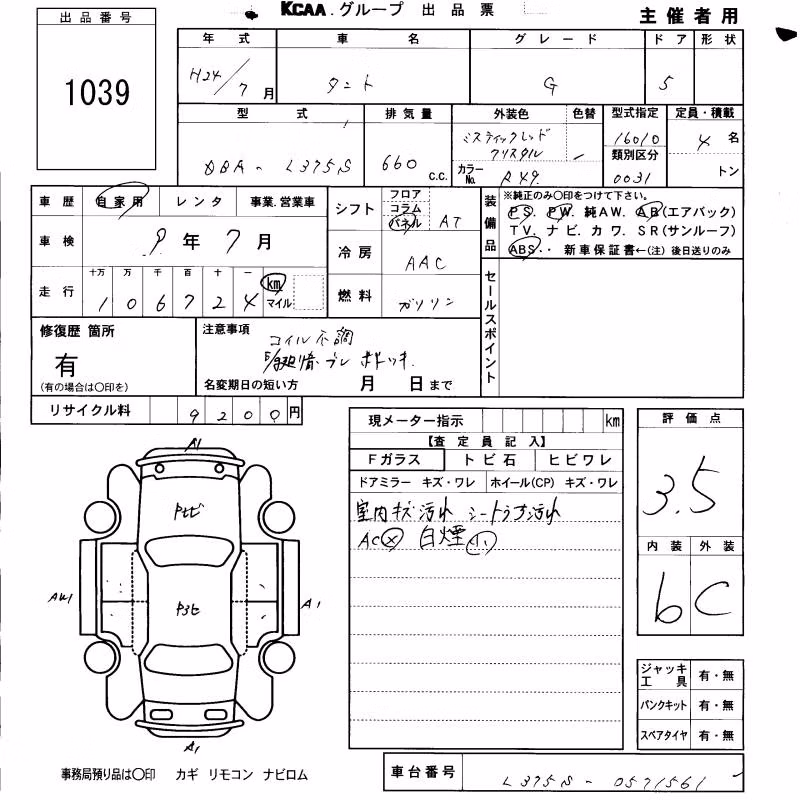 KCAA.グループ 出品票 主催者用
出品番号
1039
年式 車名 グレード ドア 形状
H24/7月 タント G 5
型式 排気量 外装色 色替 型式指定 定員・積載
DBA-L375S 660 c.c. ミスティックレッドクリスタル 16010 4名
カラーNo. R49 類別区分 0031 トン
車歴 自家用 レンタ 事業.営業車
車検 9年7月
走行 十万 万 千 百 十 一
106724 km マイル
シフト フロア コラム パネル AT
冷房 AAC
燃料 ガソリン
装備品 ※純正のみ〇印をつけて下さい。
PS. PW. 純AW. AB(エアバック)
TV. ナビ. カワ. SR(サンルーフ)
ABS・・ 新車保証書←(注) 後日送りのみ
セールスポイント
修復歴 箇所
有
(有の場合は〇印を)
注意事項
コイル不調
名変期日の短い方 月 日まで
リサイクル料 9200円
現メーター指示 km
【査定員記入】
Fガラス トビ石 ヒビワレ
ドアミラー キズ・ワレ ホイール(CP) キズ・ワレ
室内キズ汚れ シートうす汚れ
AC× 白煙小
評価点
3.5
内装 外装
6 C
A1
AW1
A1
A1
ジャッキ工具 有・無
パンクキット 有・無
スペアタイヤ 有・無
事務局預り品は〇印 カギ リモコン ナビロム
車台番号 L375S-0571561